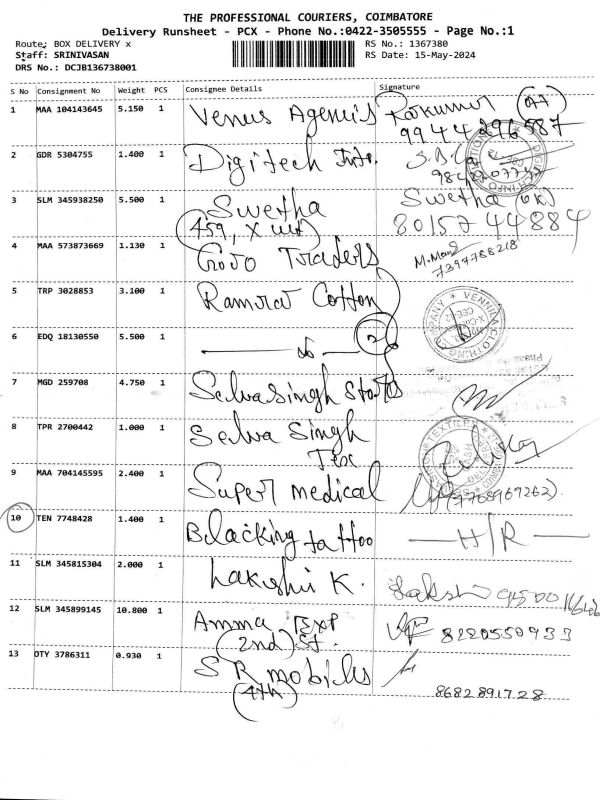 THE PROFESSIONAL COURIERS, COIMBATORE
Delivery Runsheet - PCX - Phone No.:0422-3505555 - Page No.:1
Route: BOX DELIVERY x RS No.: 1367380
Staff: SRINIVASAN RS Date: 15-May-2024
DRS No.: DCJB136738001
S No Consignment No Weight PCS Consignee Details Signature
1 MAA 104143645 5.150 1 Venus Agencis
9944296587
2 GDR 5304755 1.400 1 Digitech Info.
3 SLM 345938250 5.500 1 Swetha Swetha
(459, X 8015744884
4 MAA 573873669 1.130 1 Traders M.Mani
7397788218
5 TRP 3028853 3.100 1 Cotton
VENNILA CLOTHING COMPANY
6 EDQ 18130550 5.500 1 2
7 MGD 259708 4.750 1 Selvasingh
8 TPR 2700442 1.000 1 Selva Singh
Tex
9 MAA 704145595 2.400 1 Super medical (9768967262).
10 TEN 7748428 1.400 1 Blacking tattoo H/R
11 SLM 345815304 2.000 1 K.
12 SLM 345899145 10.800 1 Amma Exp 8220550933
(2nd) St.
13 OTY 3786311 0.930 1 S R mobiles
(4th) 8682891728